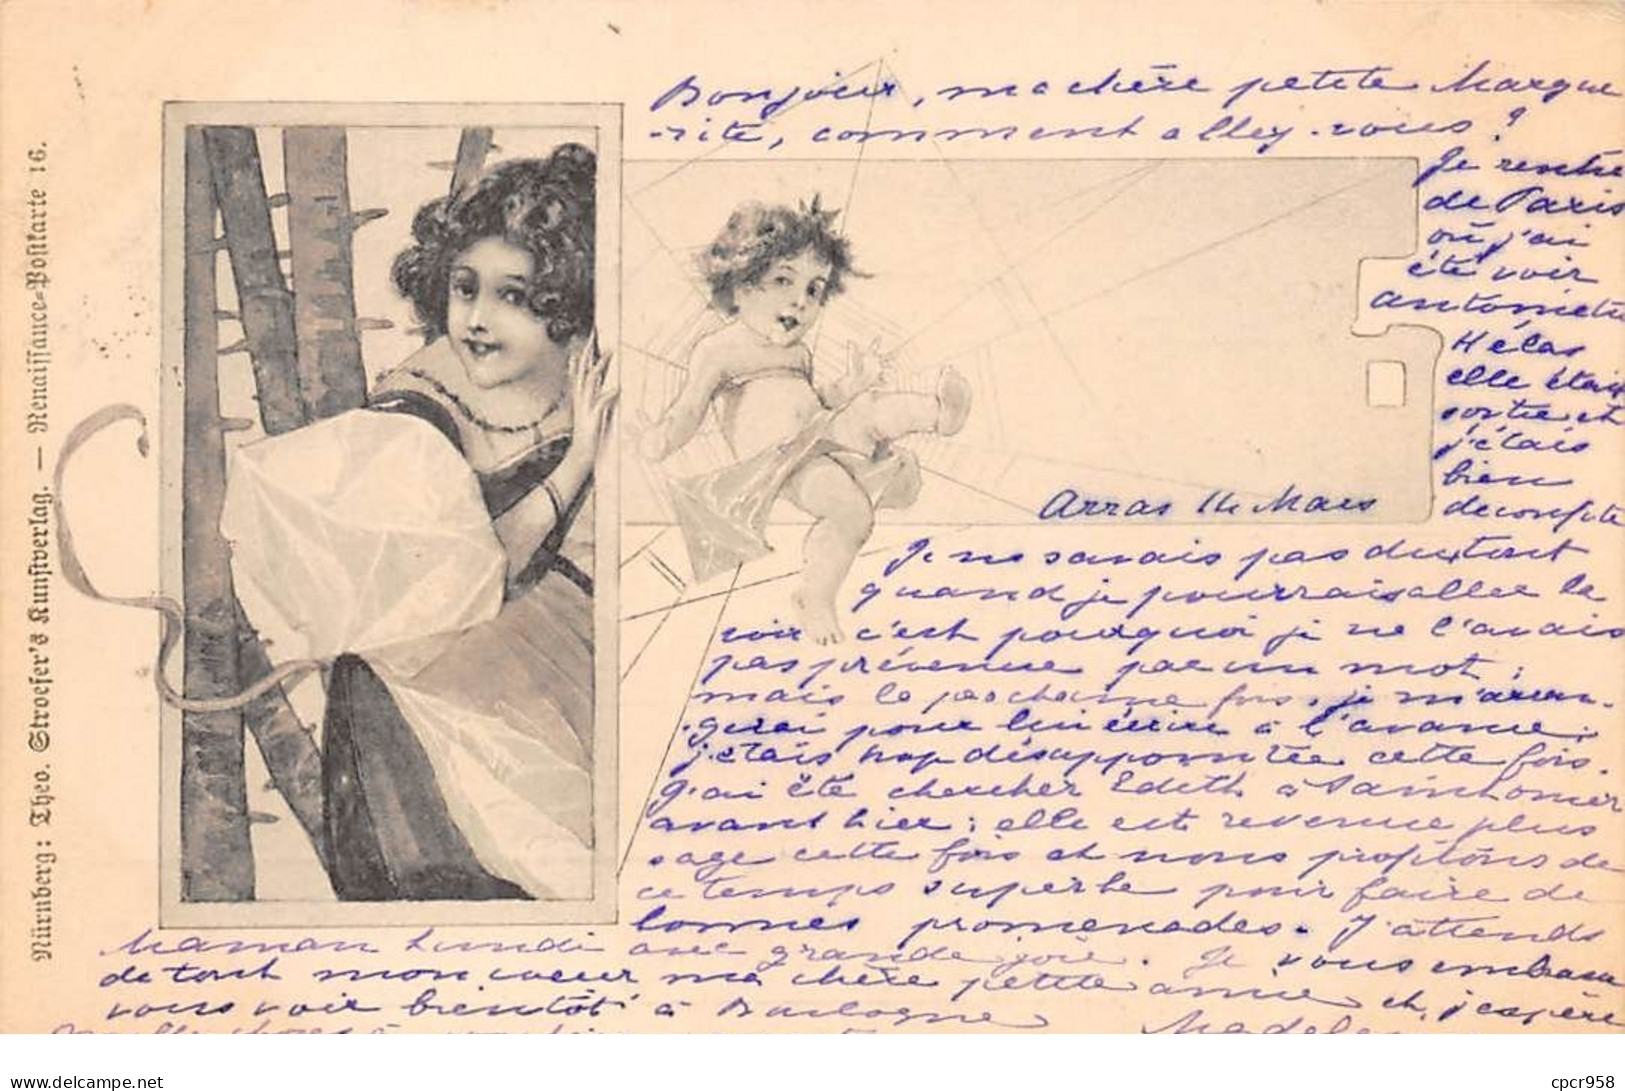 Nürnberg: Theo. Stroefer's Kunstverlag. — Renaissance-Postkarte 16.
Bonjour, ma chère petite Margue
-rite, comment allez-vous ?
Je rentre
de Paris
où j'ai
été voir
Antoinette
Hélas
elle était
sortie et
j'étais
bien
déconfite
Arras 14 Mars
Je ne savais pas du tout
quand je pourrais aller la
voir c'est pourquoi je ne l'avais
pas prévenue par un mot ;
mais la prochaine fois, je m'arran-
-gerai pour lui écrire à l'avance ;
j'étais trop désappointée cette fois.
J'ai été chercher Edith à Saint Omer
avant hier ; elle est revenue plus
sage cette fois et nous profitons de
ce temps superbe pour faire de
bonnes promenades. J'attends
Maman Lundi avec grande joie. Je vous embrasse
de tout mon cœur ma chère petite amie et j'espère
vous voir bientôt à Boulogne
choses à
cpcr958